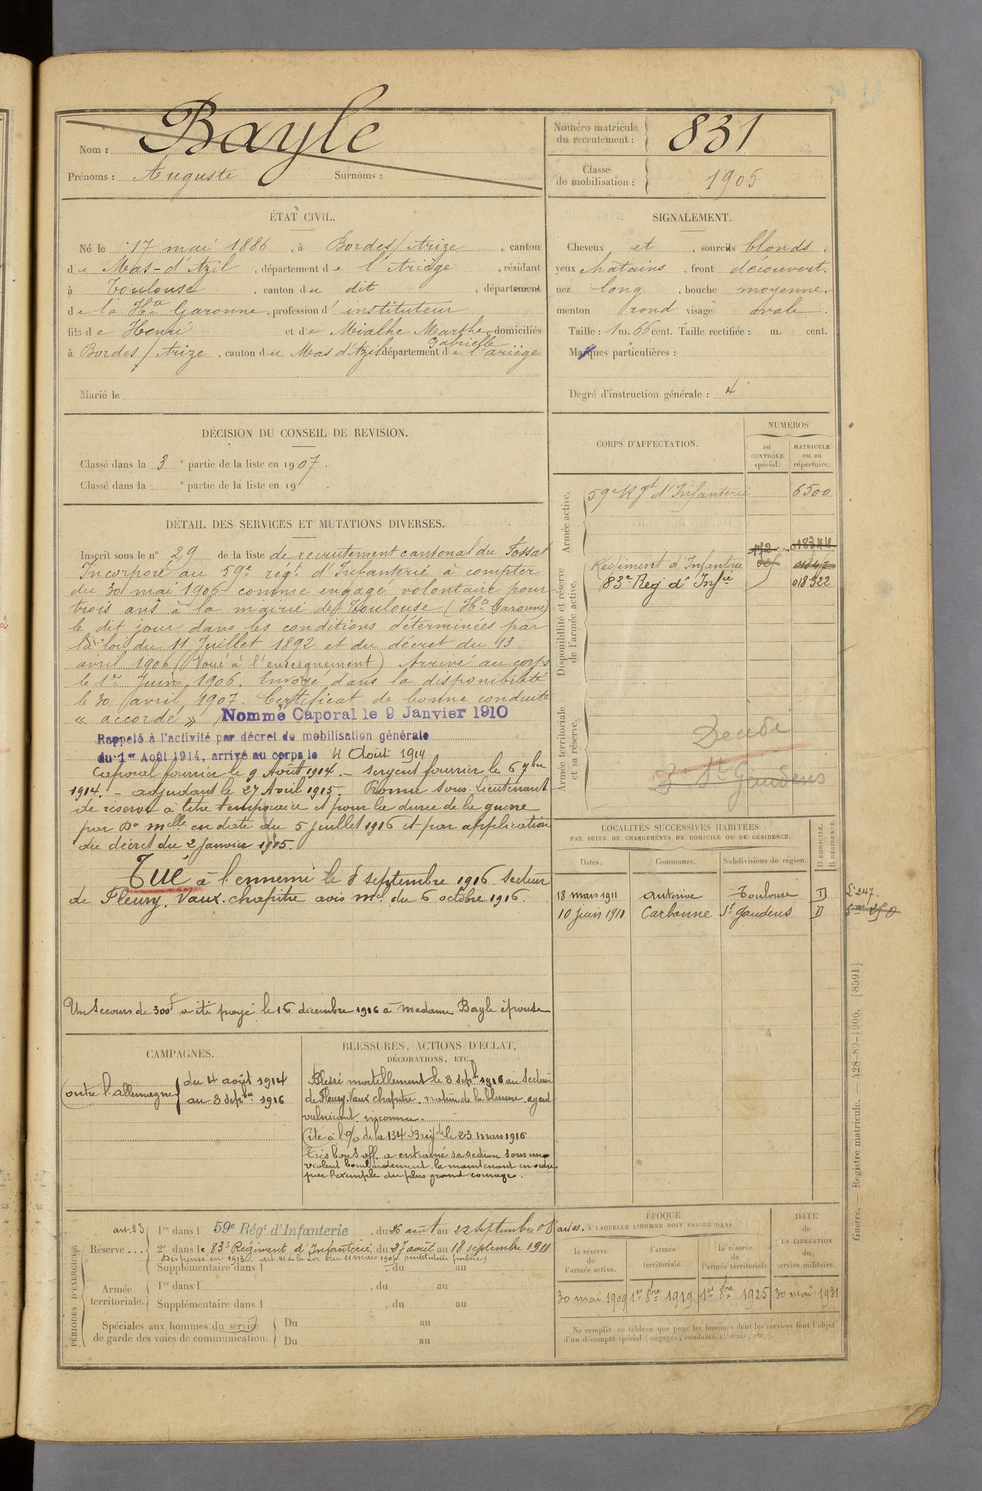 Nom : Bayle
Prénoms : Auguste Surnoms :
Numéro matricule du recrutement : 831
Classe de mobilisation : 1905
ÉTAT CIVIL.
Né le 17 mai 1886, à Bordes/Arize, canton
du Mas-d'Azil, département de l'Ariège, résidant
à Toulouse, canton du dit, département
de la Hte Garonne, profession d'instituteur
fils de Henri et de Miathe Marthe Gabrielle domiciliés
à Bordes/Arize, canton du Mas d'Azil département de l'ariège
Marié le
SIGNALEMENT.
Cheveux et sourcils blonds.
yeux chatains, front découvert.
nez long, bouche moyenne.
menton rond visage ovale.
Taille : 1 m. 66 cent. Taille rectifiée : m. cent.
Marques particulières :
Degré d'instruction générale : 4
DÉCISION DU CONSEIL DE REVISION.
Classé dans la 3e partie de la liste en 1907.
Classé dans la e partie de la liste en 19 .
DÉTAIL DES SERVICES ET MUTATIONS DIVERSES.
Inscrit sous le n° 29 de la liste de recrutement cantonal du Fossat
Incorporé au 59e régt d'Infanterie à compter
du 30 mai 1906 comme engagé volontaire pour
trois ans à la mairie de Toulouse (Hte Garonne)
le dit jour dans les conditions déterminées par
la loi du 11 Juillet 1892 et du décret du 13
avril 1906 (Voué à l'enseignement) Arrivé au corps
le 1er Juin 1906. Envoyé dans la disponibilité
le 30 avril 1907. Certificat de bonne conduite
« accordé » Nommé Caporal le 9 Janvier 1910
Rappelé à l'activité par décret de mobilisation générale
du 1er Août 1914, arrivé au corps le 4 Août 1914
Caporal fourrier le 9 Août 1914. – sergent fourrier le 6 9bre
1914. – adjudant le 27 Avril 1915 – Promu sous-lieutenant
de réserve à titre temporaire et pour la durée de la guerre
par Don mlle en date du 5 juillet 1916 et par application
du décret du 2 janvier 1915.
Tué à l'ennemi le 3 septembre 1916 secteur
de Fleury. Vaux. chapitre avis ml du 6 octobre 1916.
Un secours de 300f a été payé le 16 décembre 1916 à madame Bayle épouse
CORPS D'AFFECTATION.
NUMÉROS
AU CONTRÔLE spécial.
MATRICULE ou au répertoire.
Armée active.
59e Rgt d'Infanterie 6500
Disponibilité et réserve de l'armée active.
Régiment d'Infanterie
83e Reg d'Infie 018322
Armée territoriale et sa réserve.
Décédé
St Gaudens
LOCALITÉS SUCCESSIVES HABITÉES
PAR SUITE DE CHANGEMENTS DE DOMICILE OU DE RÉSIDENCE.
Dates. Communes. Subdivisions de région. D DOMICILE. R RÉSIDENCE.
18 mars 1911 Auterive Toulouse D
10 juin 1911 Carbonne St Gaudens D
CAMPAGNES.
Contre l'allemagne
du 4 août 1914
au 3 sepbre 1916
BLESSURES, ACTIONS D'ÉCLAT,
DÉCORATIONS, ETC.
Blessé mortellement le 3 septbre 1916 au secteur
de Fleury. Vaux chapitre. nature de la blessure. agent
vulnérant inconnu.
Cité à l'o/ de la 134 Brigde le 23 mars 1916
Très bon s/off. a entrainé sa section sous un
violent bombardement la maintenant en ordre
par l'exemple du plus grand courage.
PÉRIODES D'EXERCICES
Réserve . . .
art. 23 1re dans l 59e Régt d'Infanterie, du 26 août au 22 septembre 08
2e dans le 83e Régiment d'Infanterie, du 27 août au 18 septembre 1911
Supplémentaire dans l du au
Armée territoriale.
1re dans l , du au
Supplémentaire dans l , du au
Spéciales aux hommes du service de garde des voies de communication.
Du au
Du au
ÉPOQUE
À LAQUELLE L'HOMME DOIT PASSER DANS :
la réserve de l'armée active.
l'armée territoriale.
la réserve de l'armée territoriale
DATE DE LA LIBÉRATION du service militaire.
30 mai 1909 1er 8bre 1919 1er 8bre 1925 30 mai 1931
Ne remplir ce tableau que pour les hommes dont les services font l'objet
d'un décompte spécial (engagés, condamnés, omis, etc.).
Guerre. — Registre matricule. — 428-89-1906. [8591]